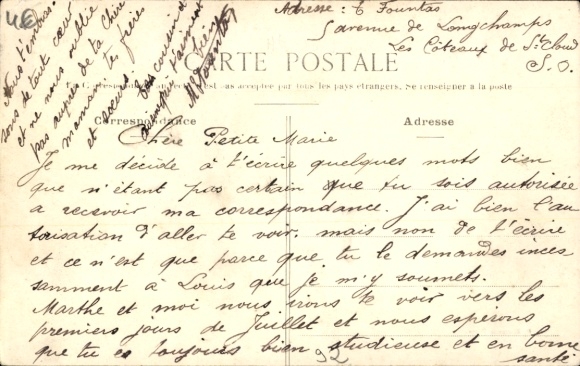 4€
Adresse : 6 Fountas
5 avenue de Longchamps
Les Côteaux de St Cloud
S. O.
CARTE POSTALE
pas acceptée par tous les pays étrangers. Se renseigner à la poste
Correspondance
Adresse
Chère Petite Marie
Je me décide à t'écrire quelques mots bien
que n'étant pas certain que tu sois autorisée
a recevoir ma correspondance. J'ai bien l'au
torisation d'aller te voir. mais non de t'écrire
et ce n'est que parce que tu le demandes inces
samment à Louis que je m'y soumets.
Marthe et moi nous irons te voir vers les
premiers jours de Juillet et nous esperons
que tu es toujours bien studieuse et en bonne
santé.
92
Nous t'embras
sons de tout cœur
et ne nous oublie
pas auprès de ta Chère
maman, tes frères
et sœurs
Ton cousin
M Fountas